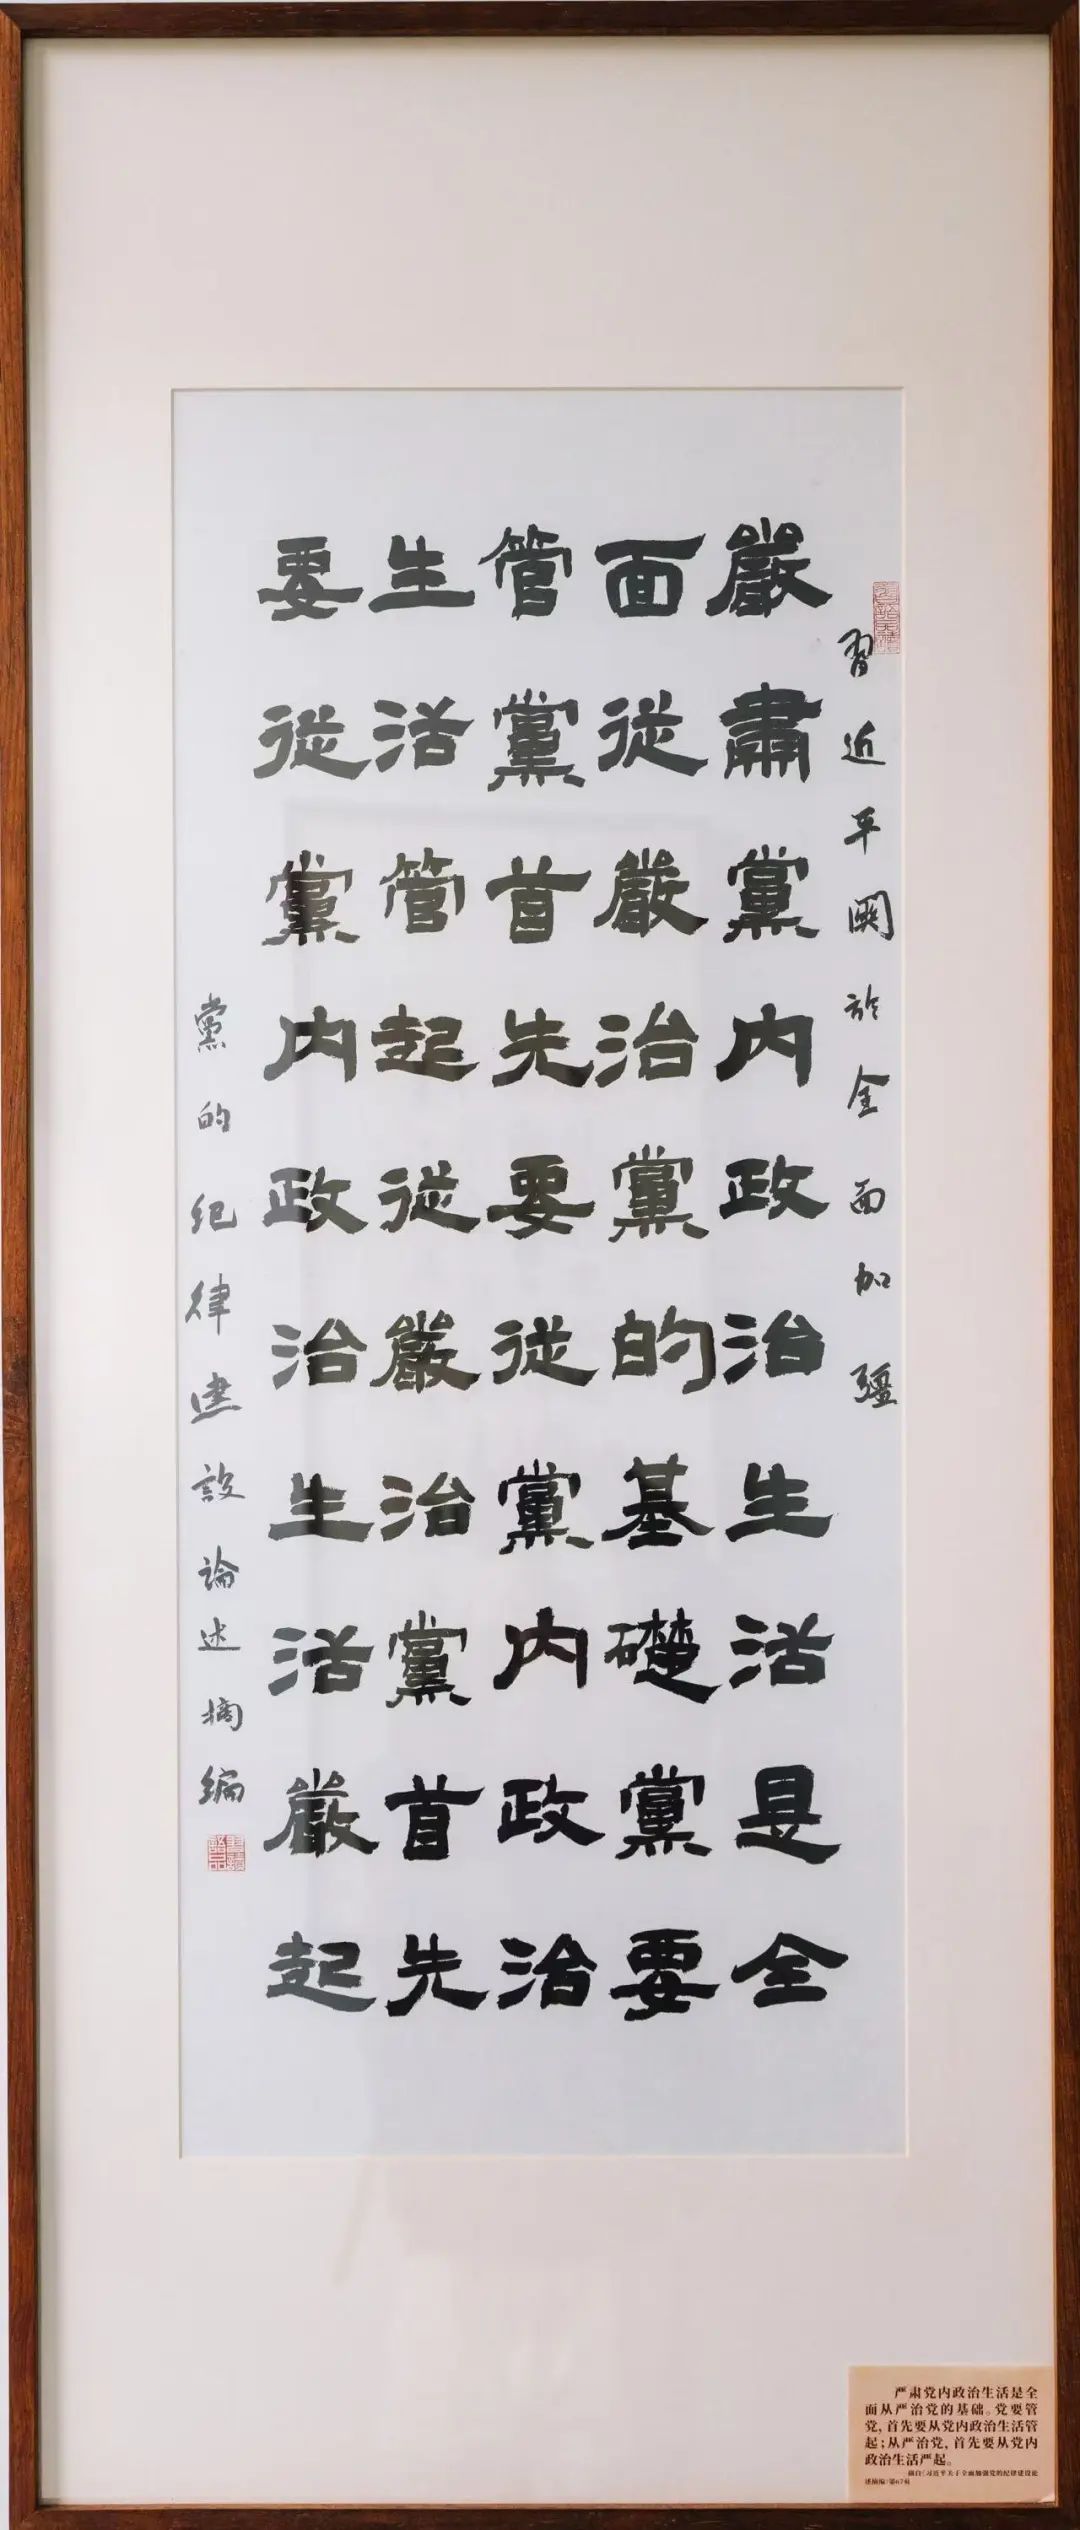 習近平關於全面加彊
嚴肅黨内政治生活是全
面從嚴治黨的基礎黨要
管黨首先要從黨内政治
生活管起從嚴治黨首先
要從黨内政治生活嚴起
黨的纪律建設論述摘編
严肃党内政治生活是全
面从严治党的基础。党要管
党,首先要从党内政治生活管
起;从严治党,首先要从党内
政治生活严起。
——摘自《习近平关于全面加强党的纪律建设论
述摘编》第67页